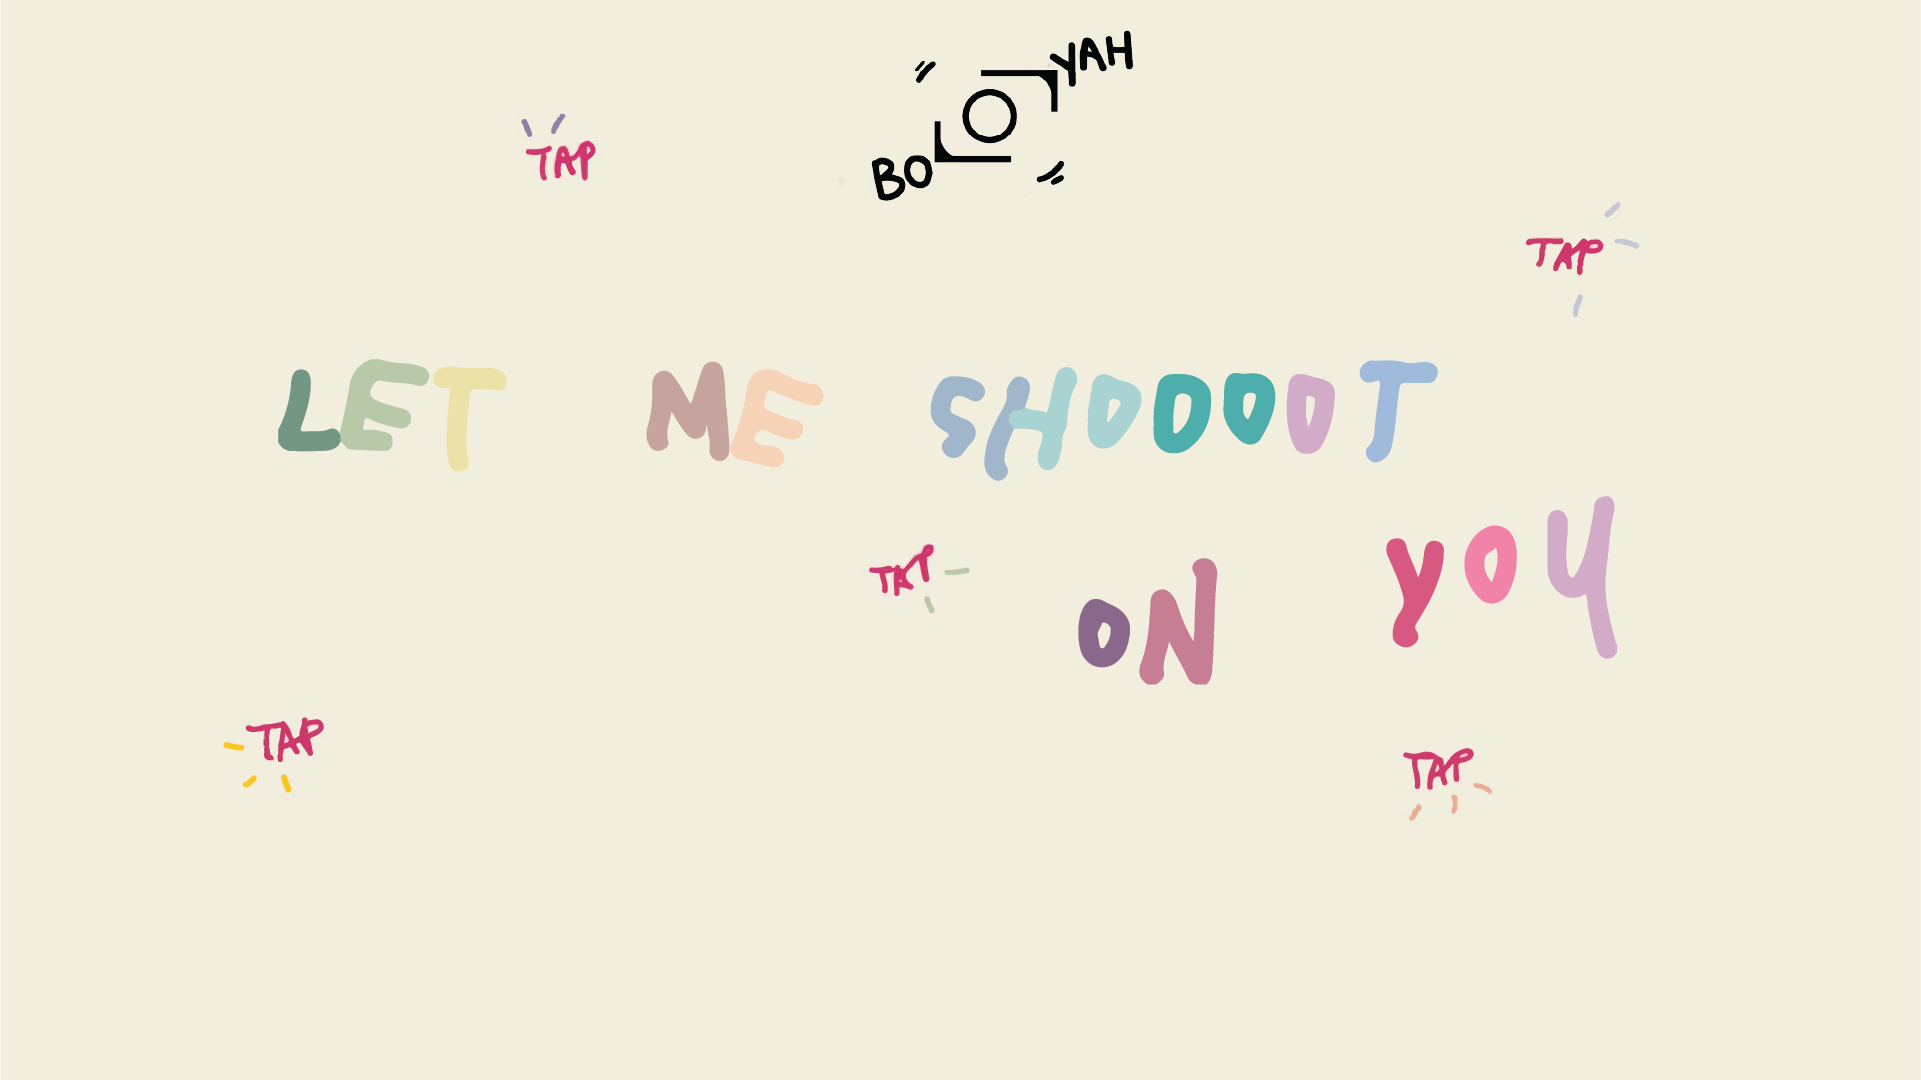 BO YAH
TAP
TAP
LET ME SHOOOOT
TAP
ON YOU
TAP
TAP